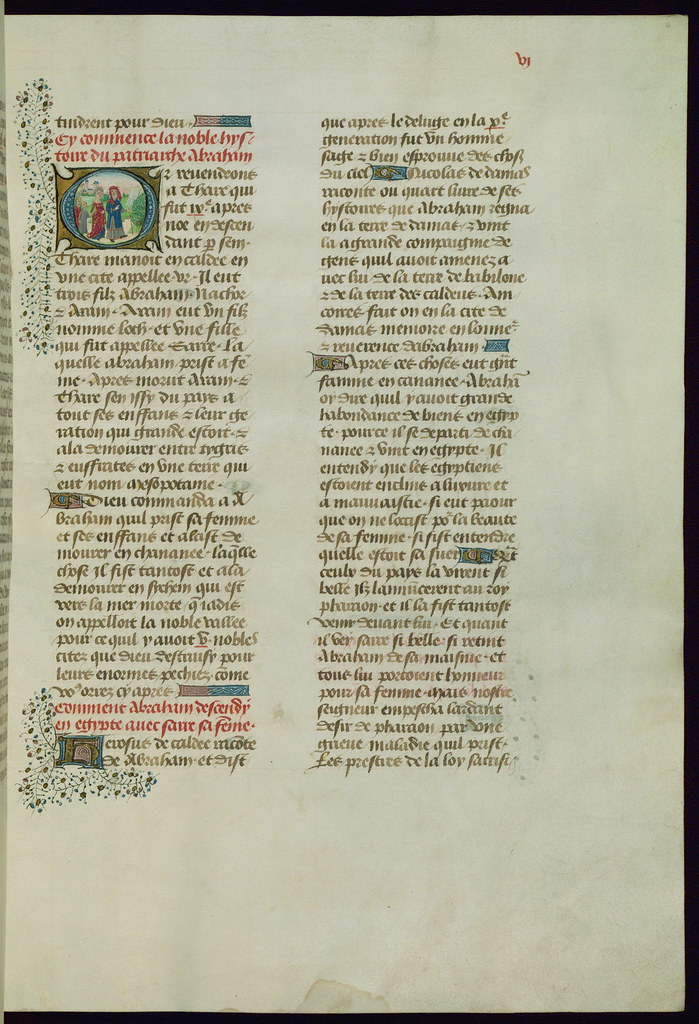 vi
tindrent pour dieu
Cy commence la noble hys-
toire du patriarche Abraham
Or revendrons
a Thare qui
fut ix.e apres
noe en descen
dant p sem.
Thare manoit en caldee en
une cite appellee vr. Il eut
trois filz Abraham. Nachor
et Aram. Aram eut un filz
nomme loth. et une fille
qui fut appellee Sarre. La
quelle abraham prist a fe
me. Apres morut Aram. et
Thare sen issy du pays a
tout ses enffans et leur ge
neration qui grande estoit. et
ala demourer entre tygris
et euffrates en une terre qui
eut nom mesopotame.
Dieu commanda a A
braham quil prist sa femme
et ses enffans et alast de
mourer en chananee. laqlle
chose il fist tantost et ala
demourer en sychem qui est
vers la mer morte q iadis
on appelloit la noble vallee
pour ce quil y avoit v. nobles
citez que dieu destruisy pour
leurs enormes pechiez come
vo9 orrez cy apres
Comment Abraham descendy
en egypte avec sarre sa feme.
Herosus de caldee racote
de Abraham. et dist
que apres le deluge en la x.e
generation fut un homme
sage et bien esprouve des choses
du ciel Nicolas de damas
raconte ou quart livre de ses
hystoires que Abraham regna
en la terre de damas. et vint
la a grande compaignie de
gens quil avoit amenez a
vec lui de la terre de babilone
et de la terre des caldeus. Am
cores fait on en la cite de
damas memoire en honne.r
et reverence dabraham.
Apres ces choses eut gnt
famine en cananee. Abrahā
oy dire quil y avoit grande
habondance de biens en egyp
te. pour ce il se departi de cha
nanee et vint en egypte. Il
entendy que les egyptiens
estoient enclins a luxure et
a mauvaistie. si eut paour
que on ne locist po9 la beaute
de sa femme. si fist entendre
quelle estoit sa suer Qnt
ceulx du pays la virent si
belle ilz lannūcerent au roy
pharaon. et il la fist tantost
venir devant lui. Et quant
il vey sarre si belle. si retint
Abraham de sa maisnie. et
tous lui portoient honneur
pour sa femme. mais nostre
seigneur empescha lardant
desir de pharaon par une
grieve maladie quil prist.
Les prestres de la loy sacrifi